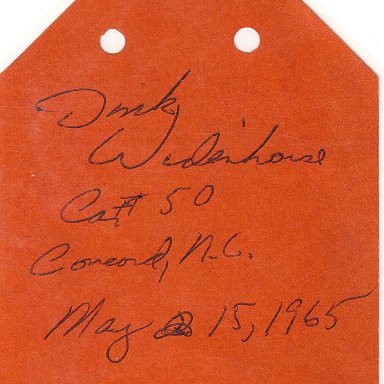 Dink
Widenhouse
Car# 50
Concord, N.C.
May 15, 1965